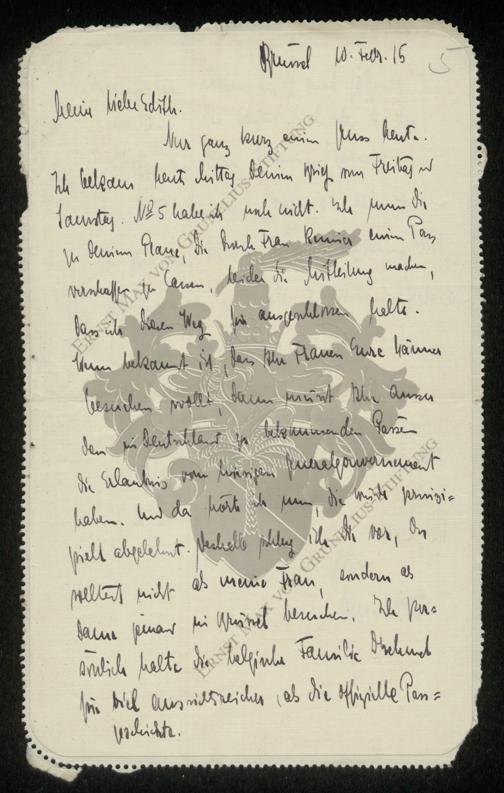 Brüssel 10. Febr. 15
5
Meine liebe Edith.
Nur ganz kurz einen Gruss heute.
Ich bekam heut Mittag Deinen Brief vom Freitag u
Samstag. No 5 habe ich noch nicht. Ich muss Dir
zu Deinem Plane, Dir durch Frau einen Pass
verschaffen zu lassen, leider die Mitteilung machen,
dass ich diesen Weg für ausgeschlossen halte.
Wenn bekannt ist, dass Ihr Frauen Eure Männer
besuchen wollt, dann müsst Ihr ausser
den in Deutschland zu bekommenden Pässen
die Erlaubnis vom hiesigen Generalgouvernement
haben. Und da hörte ich nun, die würde prinzi-
piell abgelehnt. Deshalb schlug ich Dir vor, Du
solltest nicht als meine Frau, sondern als
Dame jemand in Brüssel besuchen. Ich per-
sönlich halte die belgische Familie
für Dich aussichtsreicher, als die offizielle Pass-
geschichte.
ERNST MAX VON GRUNELIUS-STIFTUNG
ERNST MAX VON GRUNELIUS-STIFTUNG